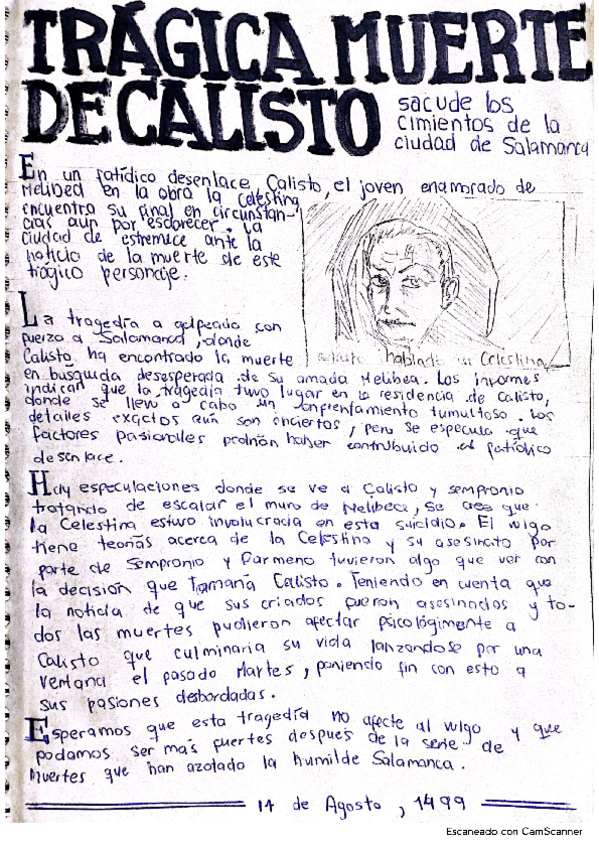 TRÁGICA MUERTE
DE CALISTO
sacude los
cimientos de la
ciudad de Salamanca
En un fatídico desenlace Calisto, el joven enamorado de
Melibea en la obra la Celestina,
encuentra su final en circunstan-
cias aun por esclarecer. La
ciudad de estremece ante la
noticia de la muerte de este
trágico personaje.
La tragedia a golpeado con
fuerza a Salamanca, donde
Calisto ha encontrado la muerte
hablado Celestina
en búsquida desesperada de su amada Melibea. Los informes
indican que la tragedia tuvo lugar en la residencia de Calisto,
donde se llevo a cabo un enfrentamiento tumultoso. Los
detalles exactos aún son inciertos, pero se especula que
factores pasionales podrían haber contribuido al fatídico
desenlace.
Hay especulaciones donde se ve a Calisto y sempronio
tratando de escalar el muro de Melibea, se cree que
la Celestina estuvo involucrada en esta suicidio. El vulgo
tiene teorías acerca de la Celestina y su asesinato por
parte de Sempronio y Parmeno tuvieron algo que ver con
la decisión que Tamaría Calisto. Teniendo en cuenta que
la noticia de que sus criados fueron asesinados y to-
dos las muertes pudieron afectar psicológimente a
Calisto que culminaria su vida lanzandose por una
ventana el pasado Martes, poniendo fin con esto a
sus pasiones desbordadas.
Esperamos que esta tragedia no afecte al vulgo y que
podamos ser más fuertes después de la serie de
Muertes que han azotado la humilde Salamanca.
14 de Agosto, 1499
Escaneado con CamScanner